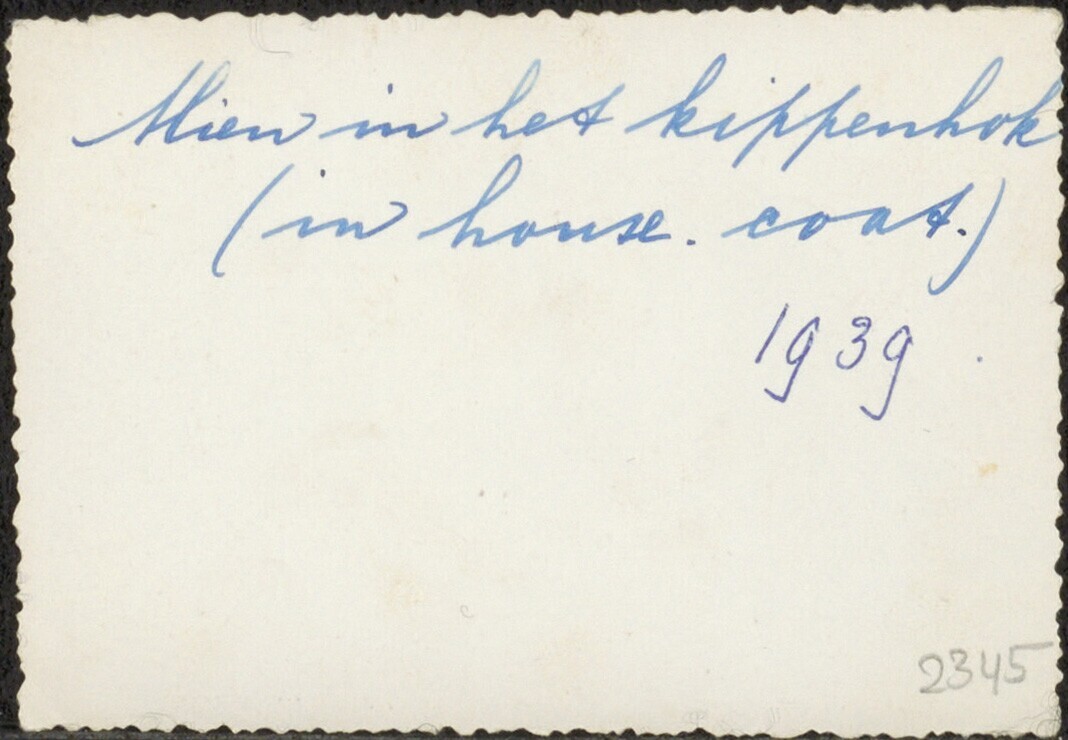 Mien in het kippenhok
(in house. coat.)
1939
2345